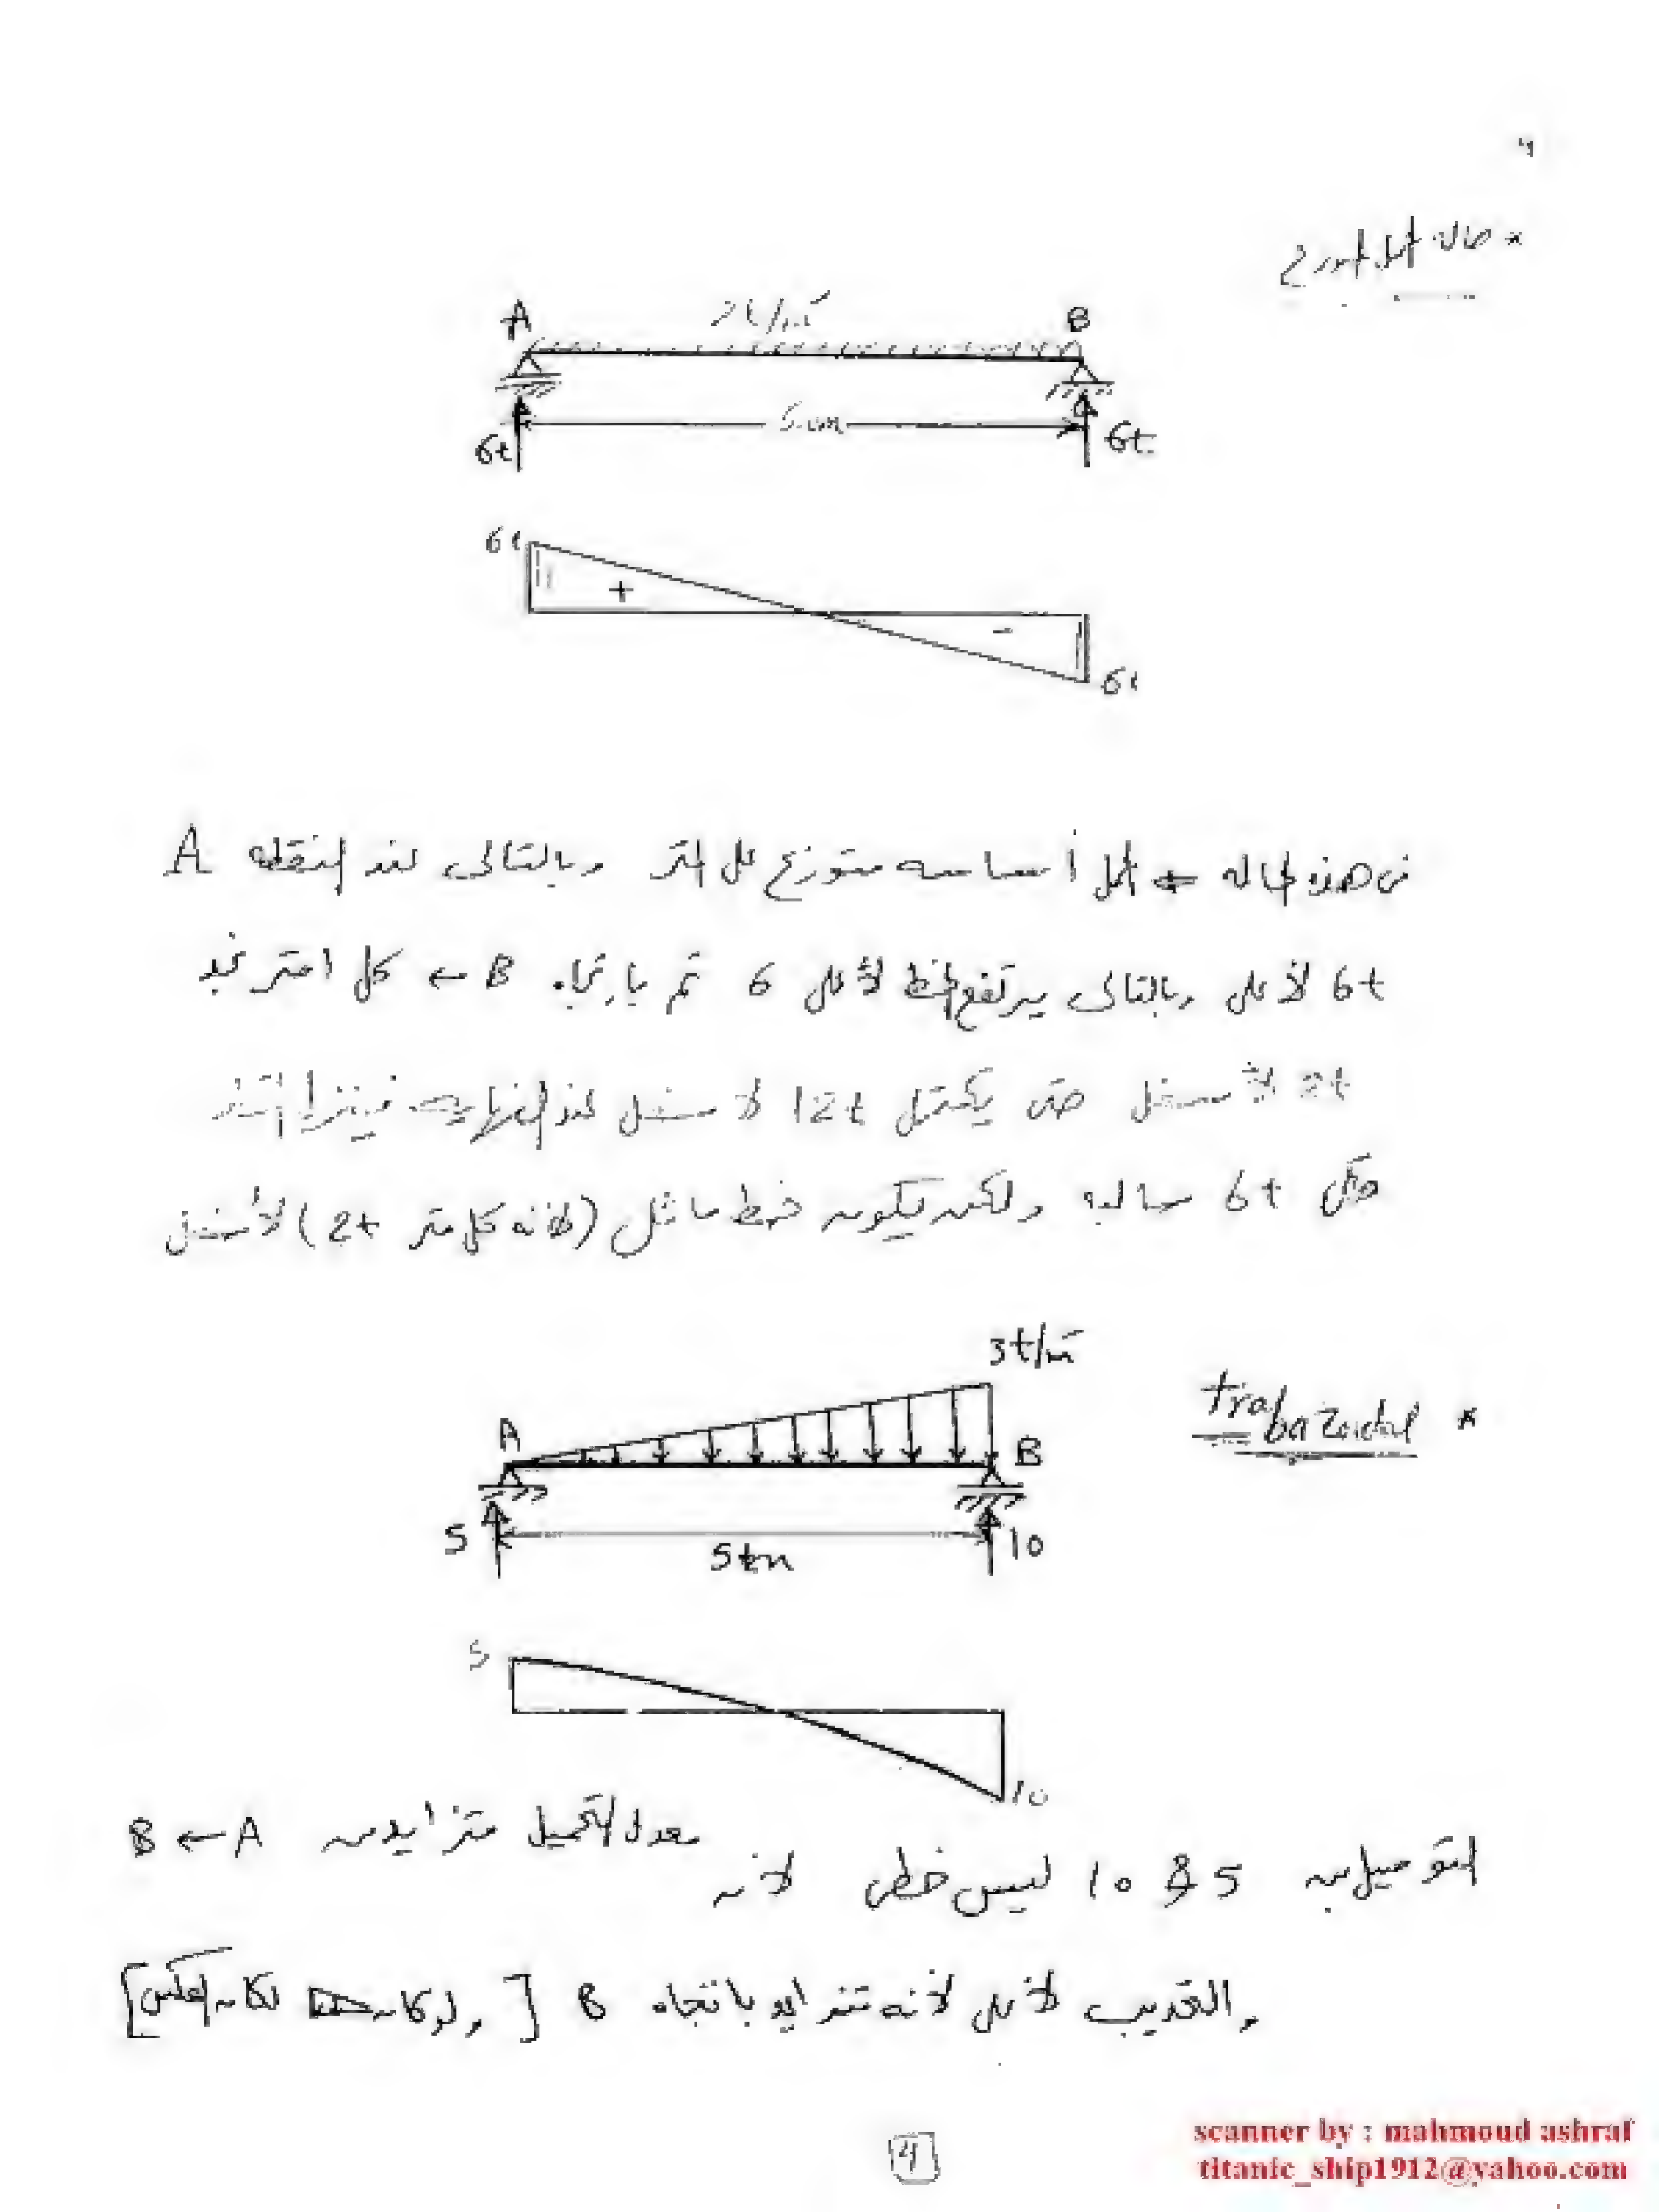 4
* حالة الحمل الموزع
A
B
6t
6t
6t
+
-
6t
فى هذه الحاله الحمل أساسه متوزع على المتر وبالتالى عند النقطه A
6t لأعلى وبالتالى يرتفع الخط لأعلى 6 ثم باتجاه B ← كل 1 متر نجد
2t لأسفل حتى يكتمل 12t لأسفل عند النهاية فينزل
6t سالبه ولكن يكون خط مائل (لأنه كل متر 2t) لأسفل
* trabazoidal
3t/m
A
B
5
10
5
10
التوصيل من 5 & 10 ليس خطى لانه معدل التحميل متزايد من A → B
والتحديب لأعلى لأنه تتزايد باتجاه B [ولو كانت لكان العكس]
4
scanner by : mahmoud ashraf
titanic_ship1912@yahoo.com